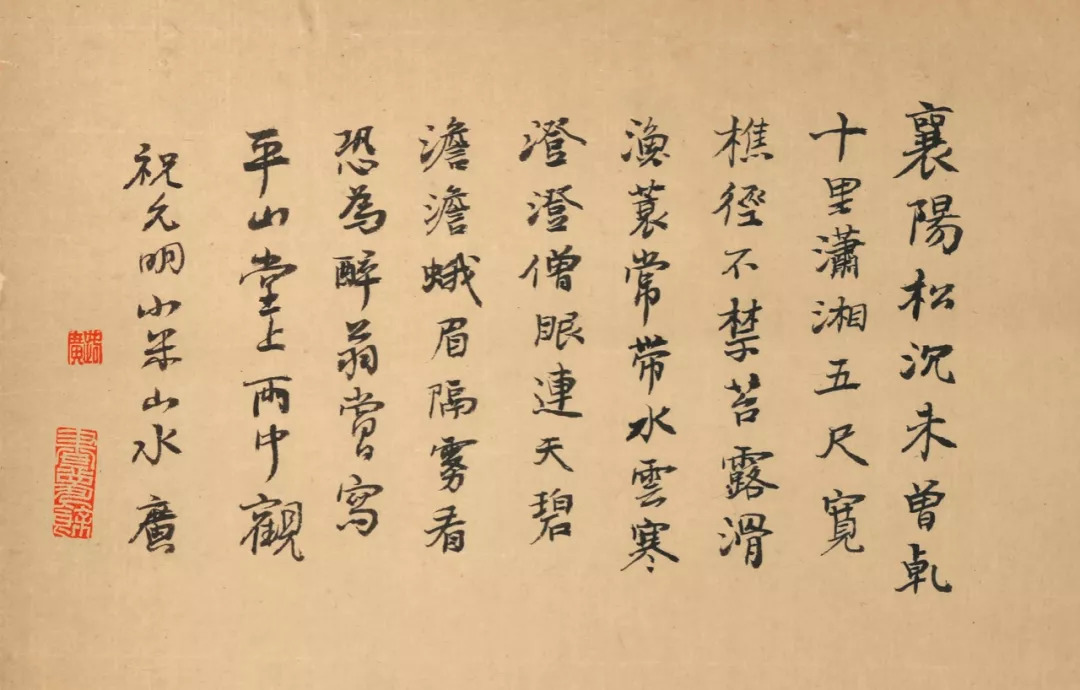 襄陽松沉未曾乹
十里瀟湘五尺寬
樵徑不禁苔露滑
漁蓑常帶水雲寒
澄澄僧眼連天碧
澹澹蛾眉隔霧看
恐為醉翁嘗寫
平山堂上雨中觀
祝允明小米山水 廣